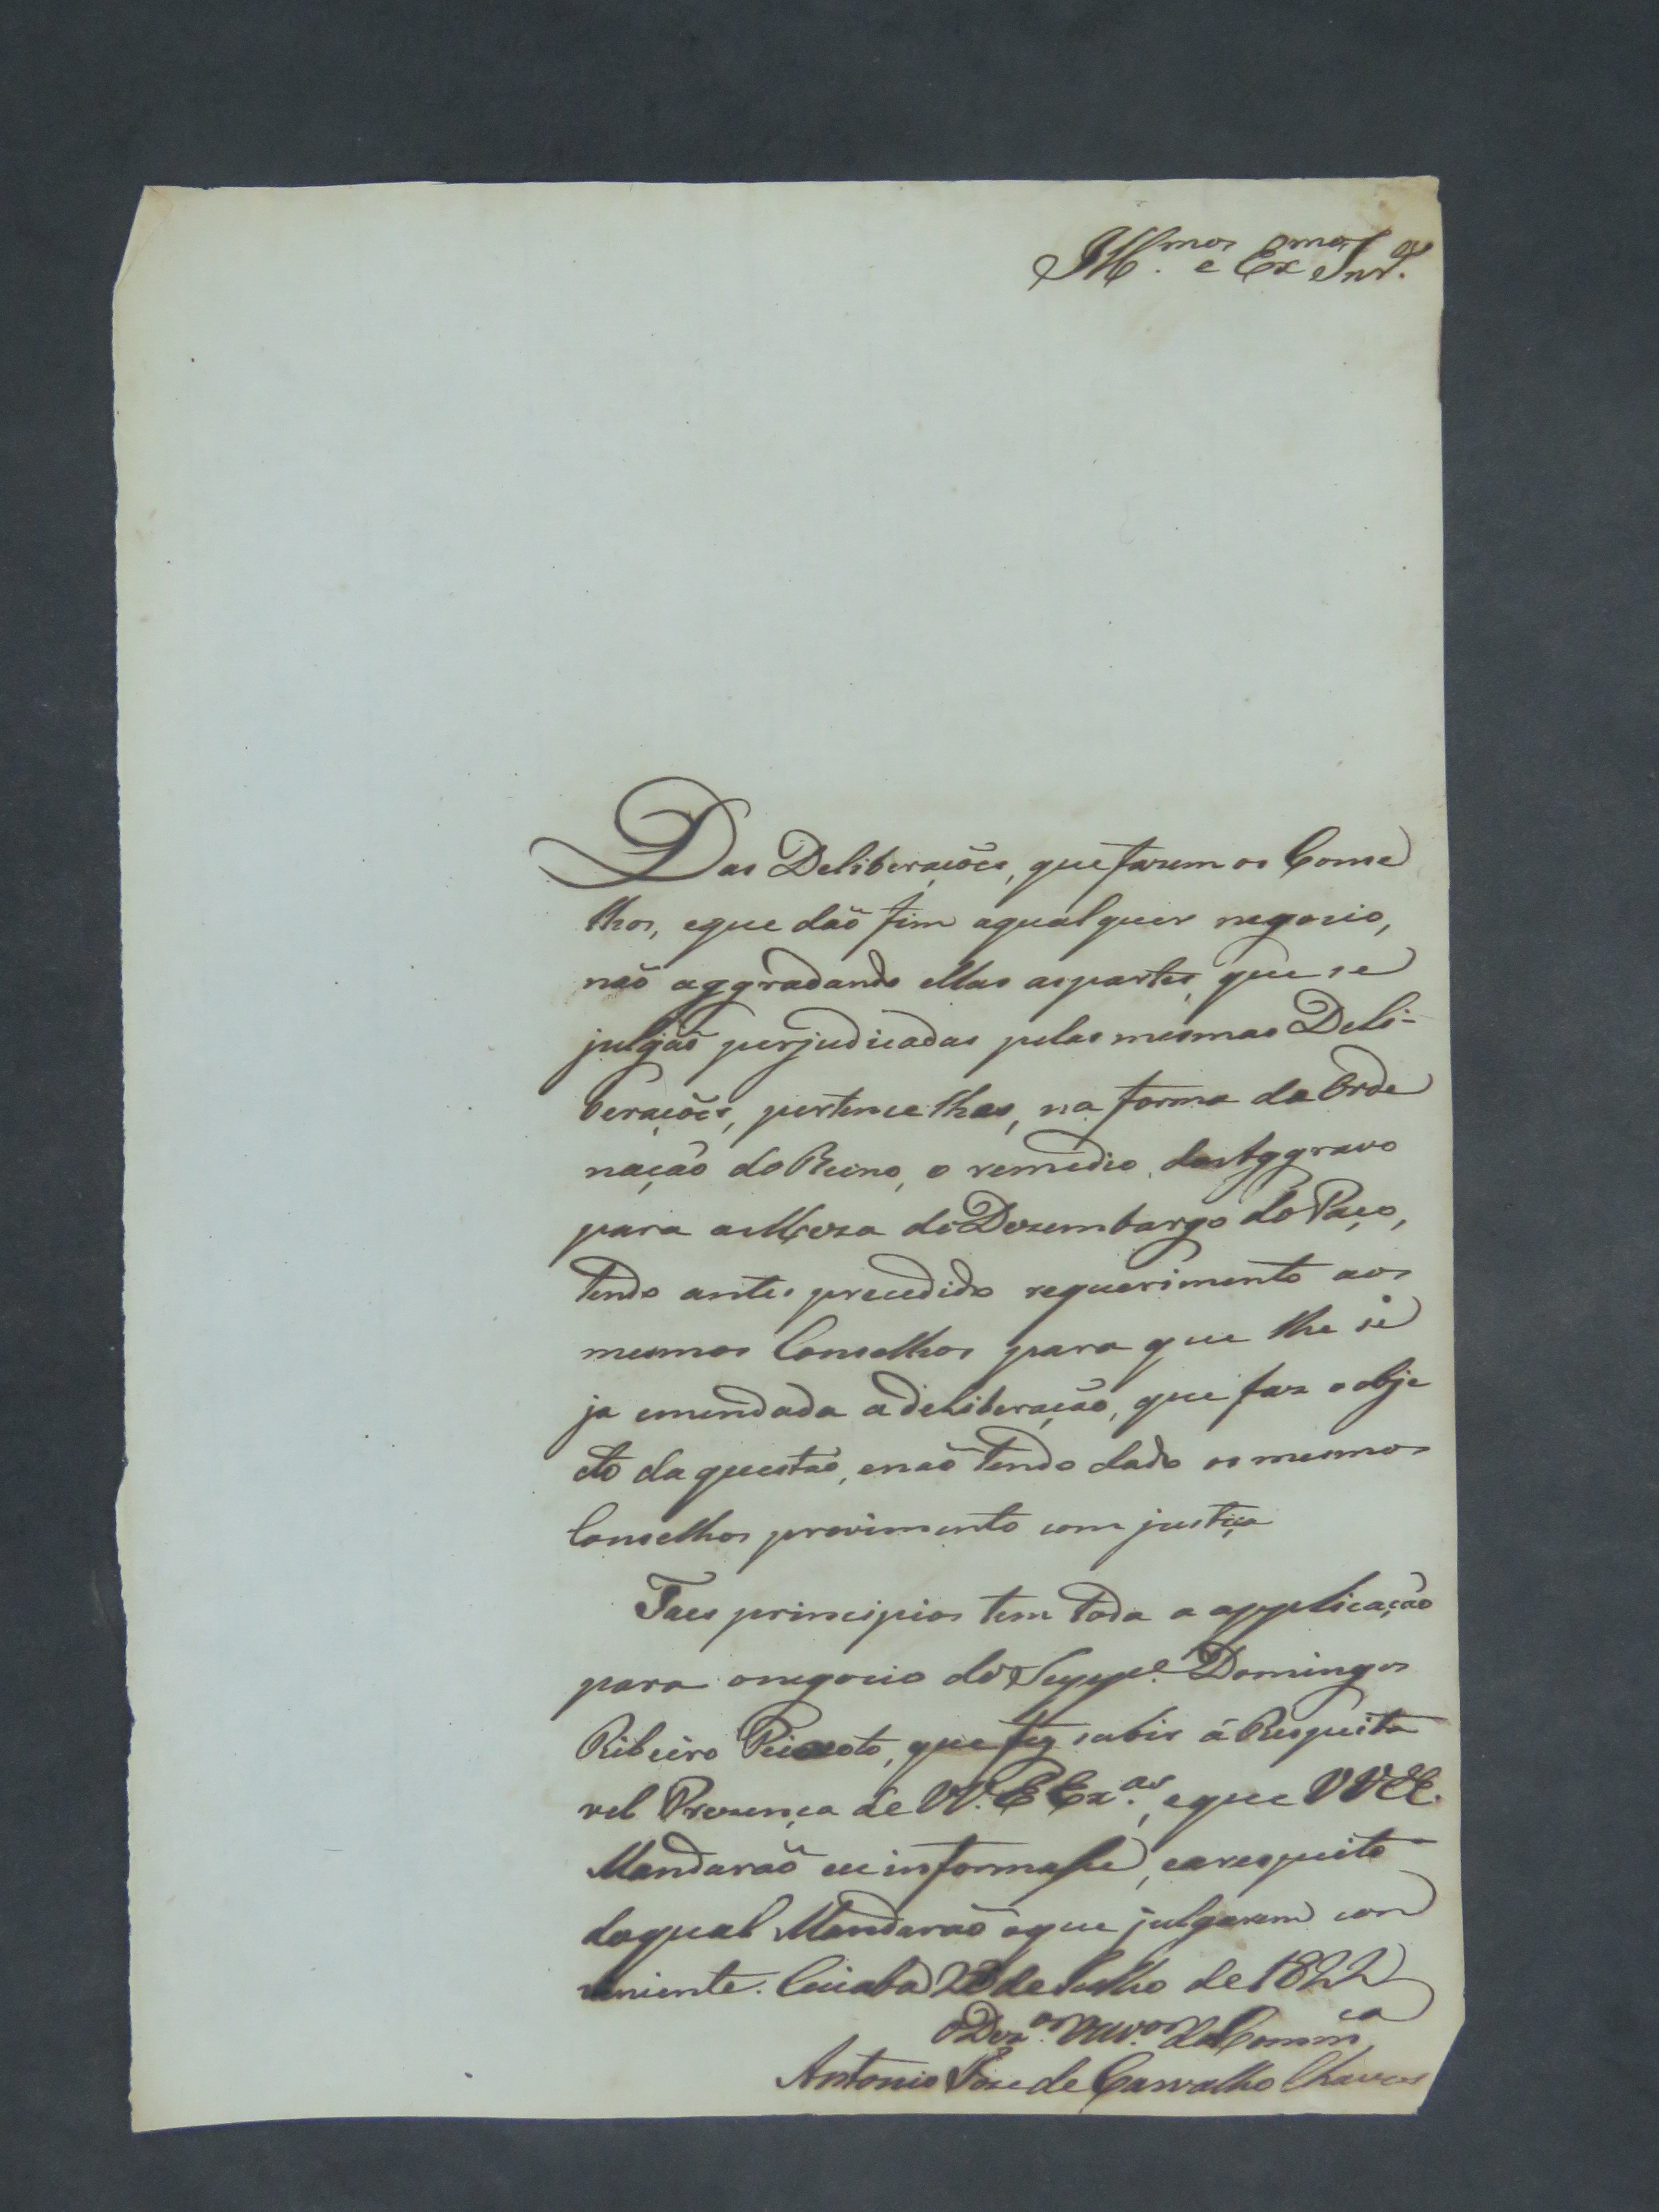 Ill.mos e Ex.mos Snr.es
Das Deliberaçoẽs, que fazem os Conse
lhos, eque daõ fim aqualquer negocio,
naõ aggradando ellas aspartes, que se
julgaõ perjudicadas pelas mesmas Deli-
beraçoẽs, pertence lhes, na forma da Orde
naçaõ do Reino, o remedio do Aggravo
para aMeza do Dezembargo do Paço,
tendo antes precedido requerimento aos
mesmos Conselhos para que lhe se
ja emendada adeliberaçaõ, que faz o obje
cto da questaõ, enaõ tendo dado os mesmos
Conselhos provimento com justiça
Taes principios tem toda a applicaçaõ
para onegocio do Supp.e Domingos
Ribeiro Peixoto, que fez subir á Respeita
vel Prezença de VV. EEx.as, eque VVEE.
Mandaraõ eu informasse, earespeito
doqual Mandaraõ oque julgarem con
viniente. Cuiabá 20 de Julho de 1822
ODez.or Ouv.or da Comm.ca
Antonio Joze de Carvalho Chaves